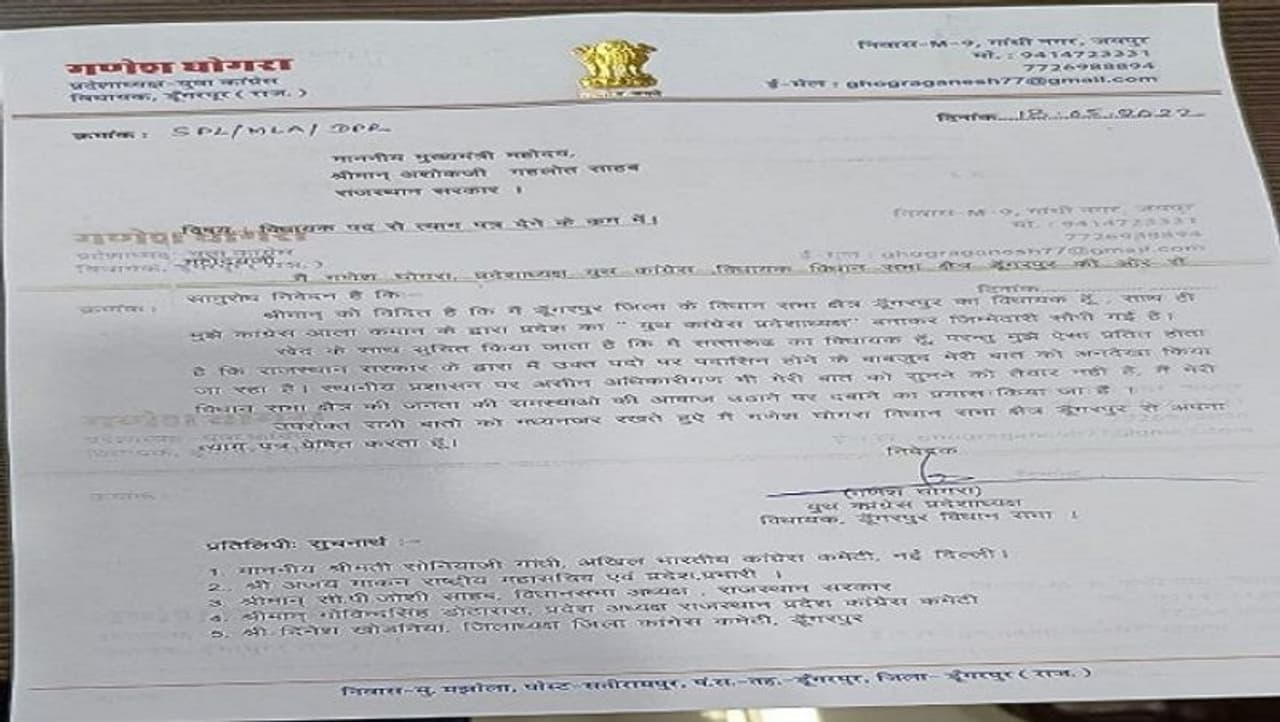 गणेश घोगरा
प्रदेशाध्यक्ष युवा कांग्रेस
विधायक, डूँगरपुर ( राज. )
निवास-M-9, गांधी नगर, जयपुर
मो. : 9414723331
7726988894
ई-मेल : ghograganesh77@gmail.com
क्रमांक : SPL/MLA/DPR
दिनांक 18.05.2022
माननीय मुख्यमंत्री महोदय,
श्रीमान् अशोकजी गहलोत साहब
राजस्थान सरकार ।
विषय : विधायक पद से त्याग पत्र देने के क्रम में।
मै गणेश घोगरा, प्रदेशाध्यक्ष युथ कांग्रेस विधायक विधान सभा क्षैत्र डूँगरपुर की ओर से
सानुरोध निवेदन है कि:-
श्रीमान् को विदित है कि मैं डूँगरपुर जिला के विधान सभा क्षैत्र डूँगरपुर का विधायक हूँ, साथ ही
मुझे कांग्रेस आला कमान के द्वारा प्रदेश का " युथ कांग्रेस प्रदेशाध्यक्ष" बनाकर जिम्मेदारी सौपी गई है।
खेद के साथ सुचित किया जाता है कि मै सत्तारूढ का विधायक हूँ, परन्तु मुझे ऐसा प्रतित होता
है कि राजस्थान सरकार के द्वारा मैं उक्त पदो पर पदासिन होने के बावजुद मेरी बात को अनदेखा किया
जा रहा है। स्थानीय प्रशासन पर असीन अधिकारीगण भी मेरी बात को सुनने को तैयार नही है, मैं मेरी
विधान सभा क्षैत्र की जनता की समस्याओ की आवाज उठाने पर दबाने का प्रयास किया जा है ।
उपरोक्त सभी बातो को मध्यनजर रखते हुऐ मैं गणेश घोगरा विधान सभा क्षैत्र डूँगरपुर से अपना
त्याग पत्र प्रेषित करता हूँ।
निवेदक
(गणेश घोगरा)
युथ कांग्रेस प्रदेशाध्यक्ष
विधायक, डूँगरपुर विधान सभा ।
प्रतिलिपीः सुचनार्थ :-
1. माननीय श्रीमती सोनियाजी गांधी, अखिल भारतीय कांग्रेस कमेटी, नई दिल्ली।
2. श्री अजय माकन राष्ट्रीय महासचिव एवं प्रदेश प्रभारी ।
3. श्रीमान् सी.पी.जोशी साहब, विधानसभा अध्यक्ष , राजस्थान सरकार
4. श्रीमान् गोविन्दसिंह डोटासरा, प्रदेश अध्यक्ष राजस्थान प्रदेश कांग्रेस कमेटी
5. श्री दिनेश खोडनिया, जिलाध्यक्ष जिला कांगेस कमेटी, डूँगरपुर
निवास-मु. मझोला, पोस्ट-सतीरामपुर, पं.स.-तह.-डूँगरपुर, जिला- डूँगरपुर ( राज. )